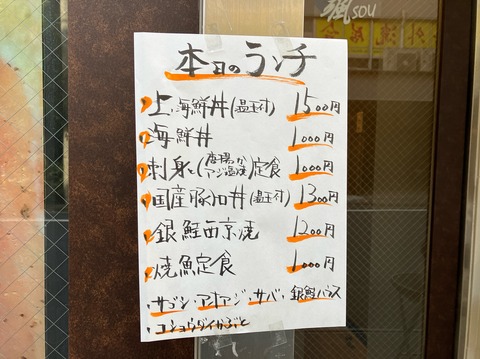 颯sou
本日のランチ
上、海鮮丼(温玉付) 1500円
海鮮丼 1000円
刺身と(唐揚か アジ塩焼)定食 1000円
国産豚トロ丼(温玉付) 1300円
銀鮭西京焼 1200円
焼魚定食 1000円
・サゴシ・アオアジ・サバ・銀鮭ハラス
・コショウダイかぶと